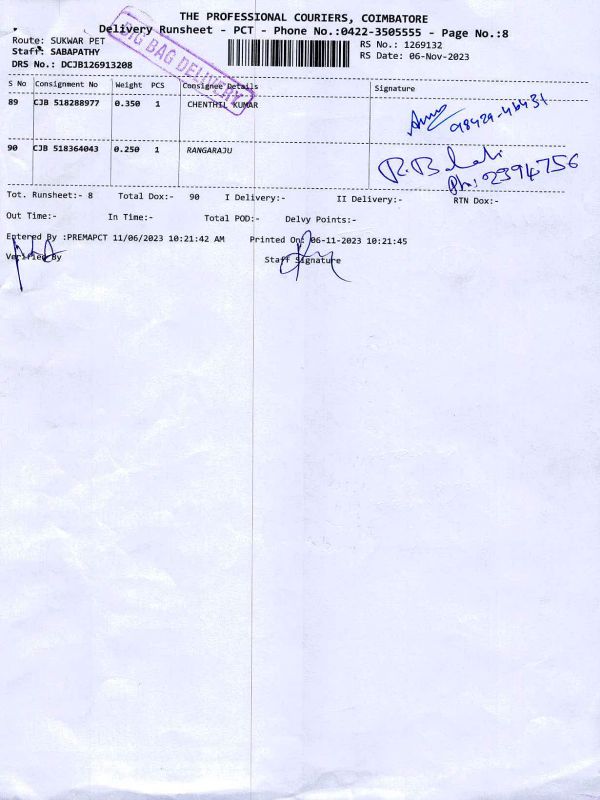 THE PROFESSIONAL COURIERS, COIMBATORE
Delivery Runsheet - PCT - Phone No.:0422-3505555 - Page No.:8
Route: SUKWAR PET
RS No.: 1269132
Staff: SABAPATHY
RS Date: 06-Nov-2023
DRS No.: DCJB126913208
BIG BAG DELIVERY
S No Consignment No Weight PCS Consignee Details Signature
89 CJB 518288977 0.350 1 CHENTHIL KUMAR
90 CJB 518364043 0.250 1 RANGARAJU
R. Balaji
Ph: 2394756
Tot. Runsheet:- 8 Total Dox:- 90 I Delivery:- II Delivery:- RTN Dox:-
Out Time:- In Time:- Total POD:- Delvy Points:-
Entered By :PREMAPCT 11/06/2023 10:21:42 AM Printed On: 06-11-2023 10:21:45
Verified By Staff Signature